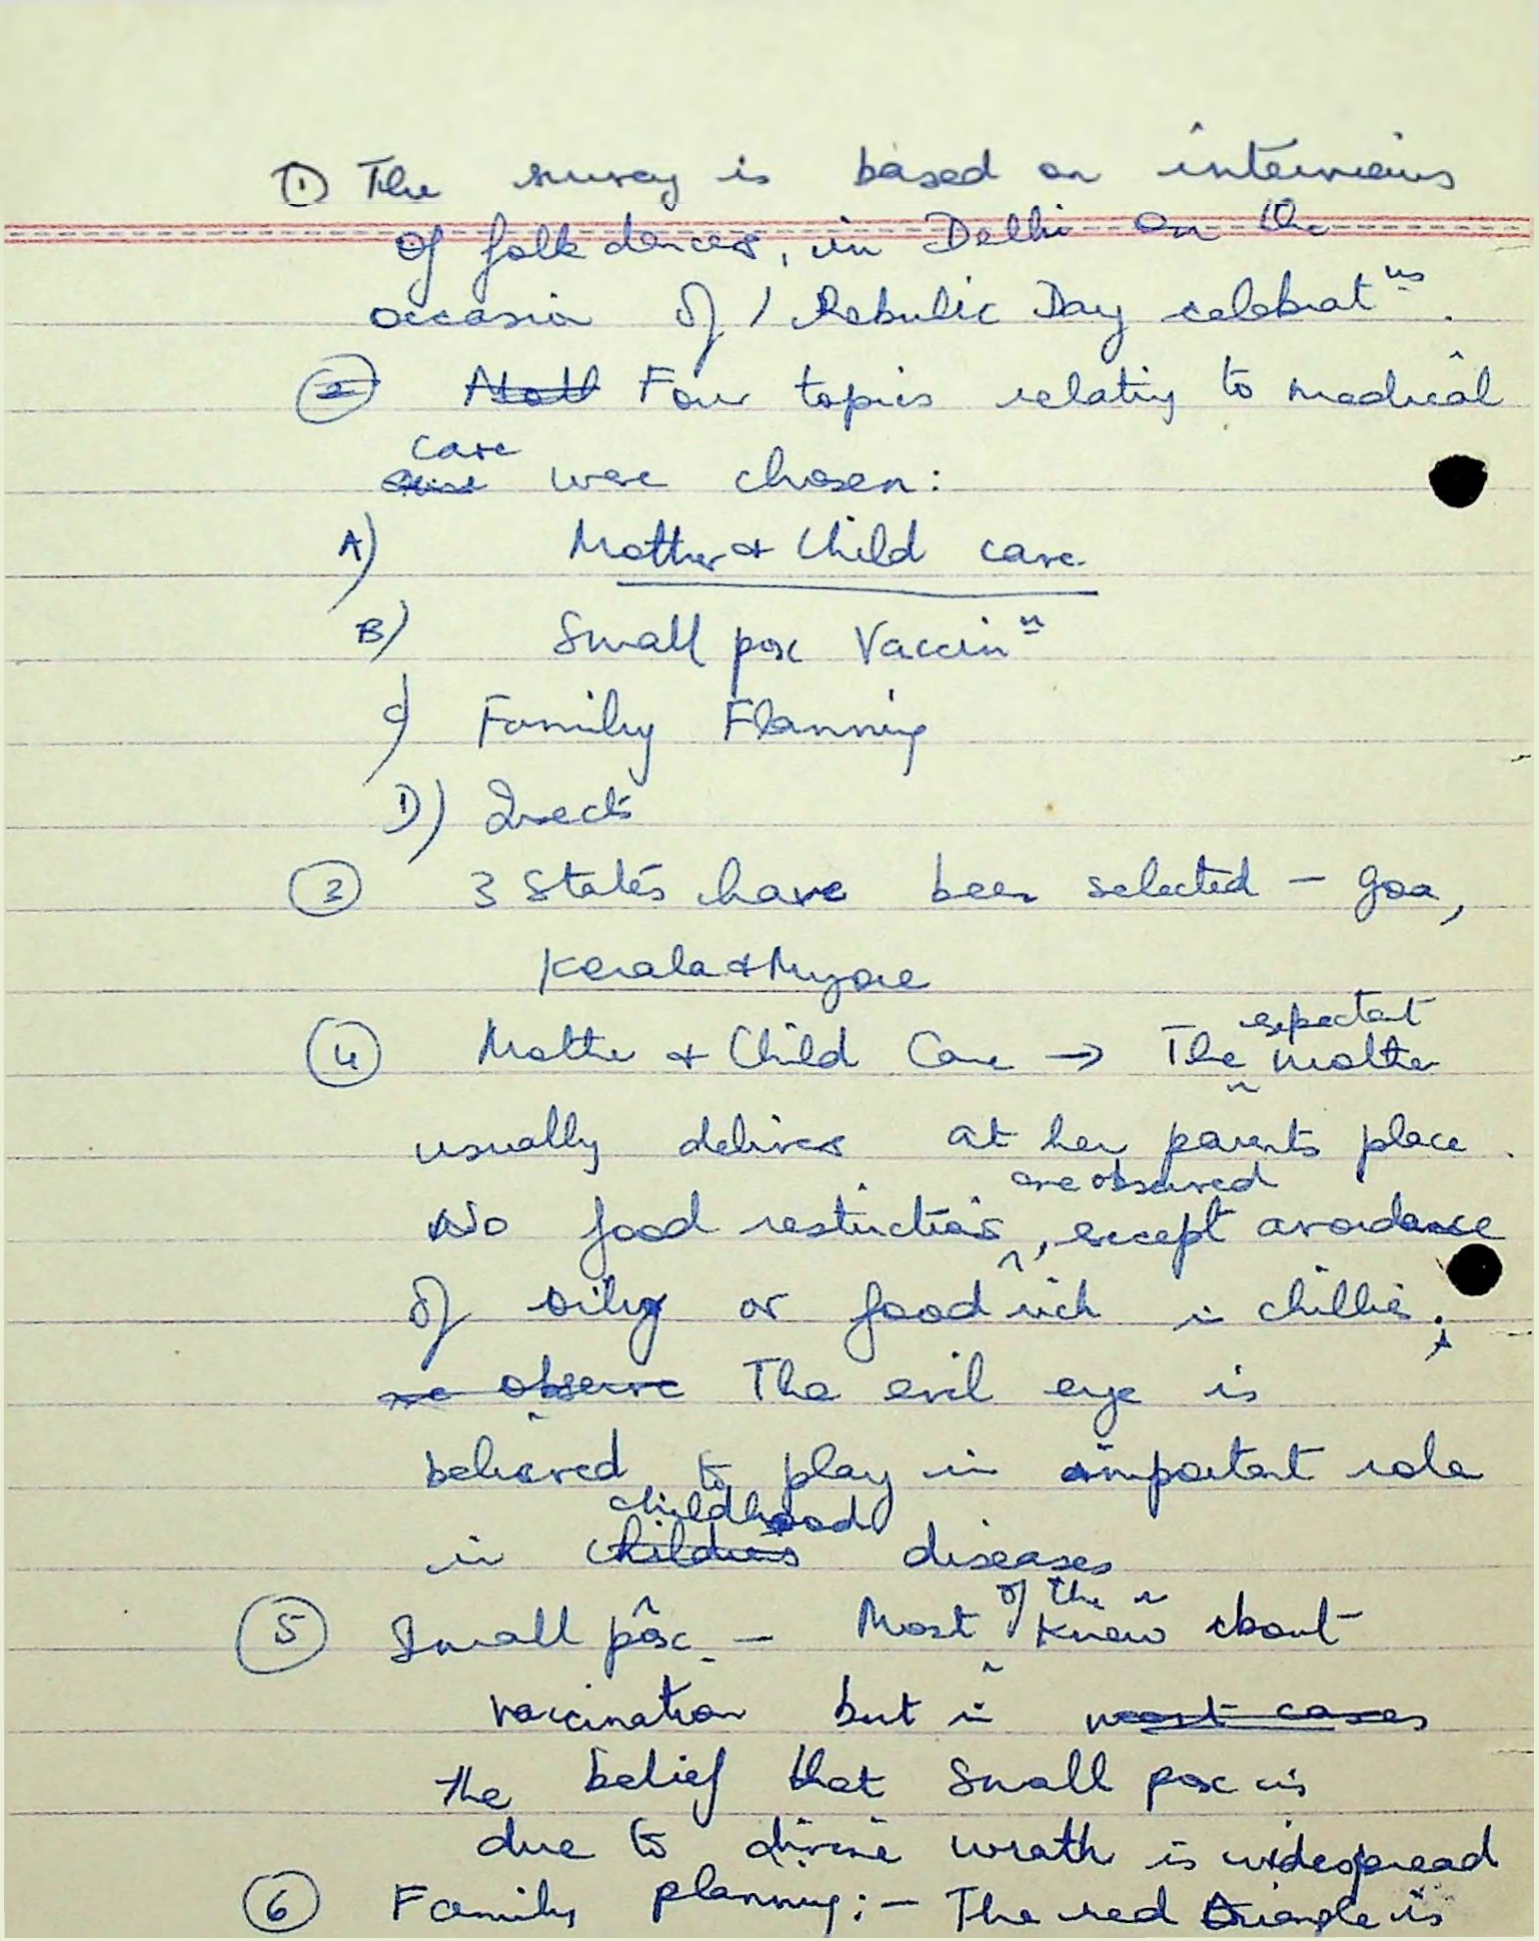 ① The survey is based on interviews
of folk dancers, in Delhi on the
occasion of / Rebulic Day celebrat ns.
② Four topics relating to medical
care were chosen:
A) Mother & Child care
B) Small pox Vaccin n
C) Family Planning
D) Insects
③ 3 States have been selected - Goa,
Kerala & Mysore
④ Mother & Child Care → The expectant mother
usually delivers at her parents place.
No food restrictions are observed, except avoidance
of oily or food rich in chillies.
The evil eye is
believed to play in important role
in childhood diseases
⑤ Small pox - Most of the know about
vaccination but in
the belief that small pox is
due to divine wrath is widespread
⑥ Family planning:- The red triangle is